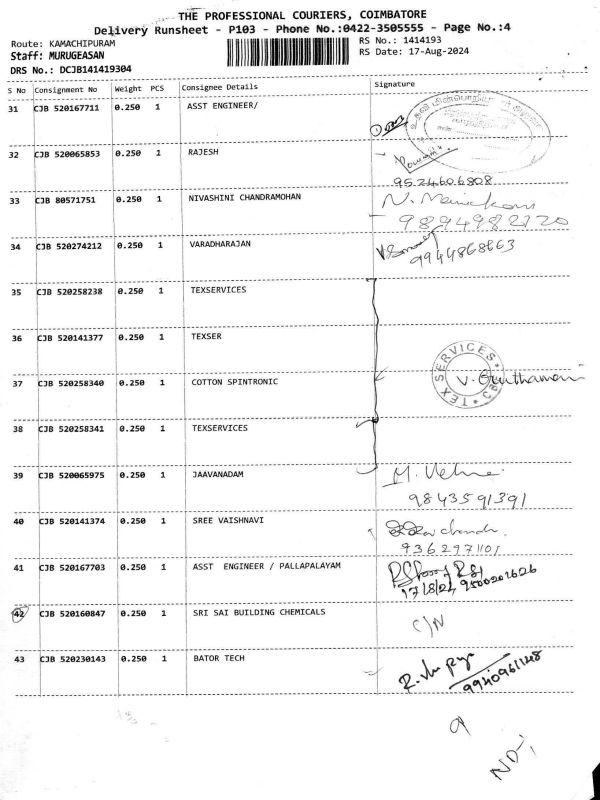 THE PROFESSIONAL COURIERS, COIMBATORE
Delivery Runsheet - P103 - Phone No.:0422-3505555 - Page No.:4
Route: KAMACHIPURAM
RS No.: 1414193
Staff: MURUGEASAN
RS Date: 17-Aug-2024
DRS No.: DCJB141419304
S No Consignment No Weight PCS Consignee Details Signature
31 CJB 520167711 0.250 1 ASST ENGINEER/
32 CJB 520065853 0.250 1 RAJESH
9524606808
33 CJB 80571751 0.250 1 NIVASHINI CHANDRAMOHAN
9894982720
34 CJB 520274212 0.250 1 VARADHARAJAN
9944868663
35 CJB 520258238 0.250 1 TEXSERVICES
36 CJB 520141377 0.250 1 TEXSER
TEX SERVICES * CB
37 CJB 520258340 0.250 1 COTTON SPINTRONIC
38 CJB 520258341 0.250 1 TEXSERVICES
39 CJB 520065975 0.250 1 JAAVANADAM
9843591391
40 CJB 520141374 0.250 1 SREE VAISHNAVI
9362971101
41 CJB 520167703 0.250 1 ASST ENGINEER / PALLAPALAYAM
17/8/24 9500201626
42 CJB 520160847 0.250 1 SRI SAI BUILDING CHEMICALS C/N
43 CJB 520230143 0.250 1 BATOR TECH
9940961148
9
ND-;